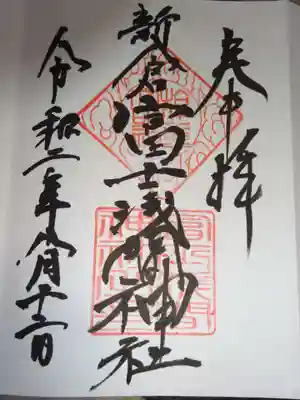 奉拝
新倉富士浅間神社
令和二年八月十三日